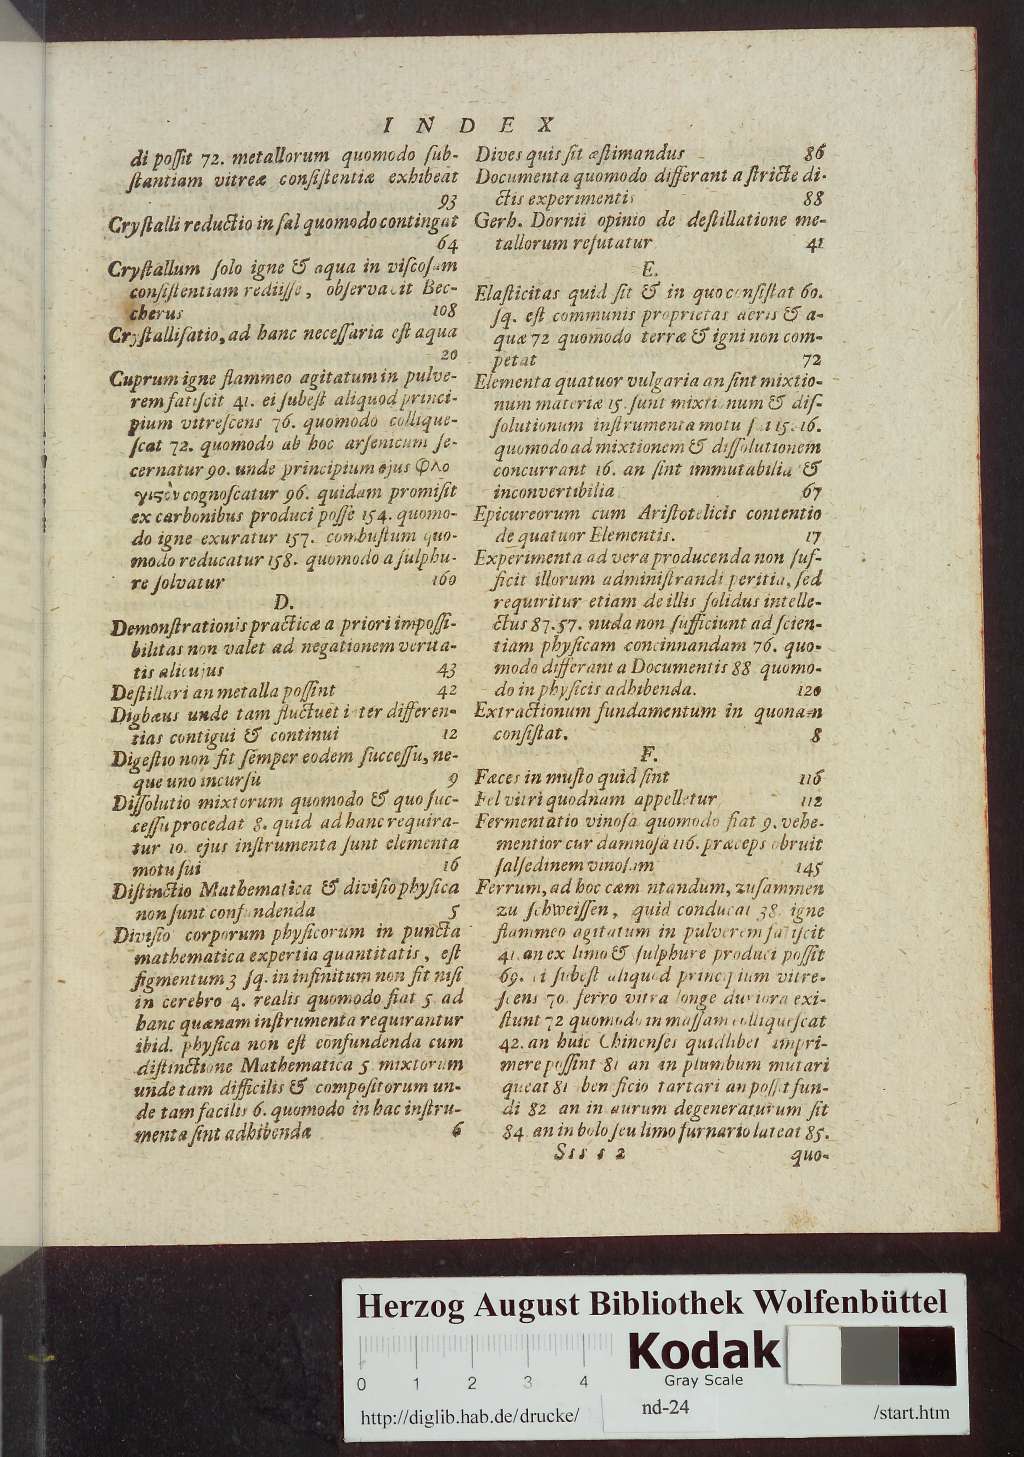 INDEX
di poſſit 72. metallorum quomodo ſub-
ſtantiam vitreæ conſiſtentiæ exhibeat
93
Cryſtalli reductio in ſal quomodo contingat
64
Cryſtallum ſolo igne & aqua in viſcoſam
conſiſtentiam rediiſſe, obſervavit Bec-
cherus 108
Cryſtalliſatio, ad hanc neceſſaria eſt aqua
20
Cuprum igne flammeo agitatum in pulve-
rem fatiſcit 41. ei ſubeſt aliquod princi-
pium vitreſcens 76. quomodo collique-
ſcat 72. quomodo ab hoc arſenicum ſe-
cernatur 90. unde principium ejus φλο
γιϛὸν cognoſcatur 96. quidam promiſit
ex carbonibus produci poſſe 154. quomo-
do igne exuratur 157. combuſtum quo-
modo reducatur 158. quomodo a ſulphu-
re ſolvatur 160
D.
Demonſtrationis practicæ a priori impoſſi-
bilitas non valet ad negationem verita-
tis alicujus 43
Deſtillari an metalla poſſint 42
Digbæus unde tam fluctuet inter differen-
tias contigui & continui 12
Digeſtio non fit ſemper eodem ſucceſſu, ne-
que uno incurſu 9
Diſſolutio mixtorum quomodo & quo ſuc-
ceſſu procedat 8. quid ad hanc requira-
tur 10. ejus inſtrumenta ſunt elementa
motu ſui 16
Diſtinctio Mathematica & diviſio phyſica
non ſunt confundenda 5
Diviſio corporum phyſicorum in puncta
mathematica expertia quantitatis, eſt
figmentum 3 ſq. in infinitum non fit niſi
in cerebro 4. realis quomodo fiat 5. ad
hanc quænam inſtrumenta requirantur
ibid. phyſica non eſt confundenda cum
diſtinctione Mathematica 5 mixtorum
unde tam difficilis & compoſitorum un-
de tam facilis 6. quomodo in hac inſtru-
menta ſint adhibenda 6
Dives quis ſit æſtimandus 86
Documenta quomodo differant a ſtricte di-
ctis experimentis 88
Gerh. Dornii opinio de deſtillatione me-
tallorum refutatur 41
E.
Elaſticitas quid ſit & in quo conſiſtat 60.
ſq. eſt communis proprietas aeris & a-
quæ 72 quomodo terræ & igni non com-
petat 72
Elementa quatuor vulgaria an ſint mixtio-
num materiæ 15. ſunt mixtionum & diſ-
ſolutionum inſtrumenta motu ſui 15. 16.
quomodo ad mixtionem & diſſolutionem
concurrant 16. an ſint immutabilia &
inconvertibilia 67
Epicureorum cum Ariſtotelicis contentio
de quatuor Elementis. 17
Experimenta ad vera producenda non ſuf-
ficit illorum adminiſtrandi peritia, ſed
requiritur etiam de illis ſolidus intelle-
ctus 87.57. nuda non ſufficiunt ad ſcien-
tiam phyſicam concinnandam 76. quo-
modo differant a Documentis 88 quomo-
do in phyſicis adhibenda. 120
Extractionum fundamentum in quonam
conſiſtat. 8
F.
Fæces in muſto quid ſint 116
Fel vitri quodnam appelletur 112
Fermentatio vinoſa quomodo fiat 9. vehe-
mentior cur damnoſa 116. præceps obruit
ſalſedinem vinoſam 145
Ferrum, ad hoc cæmentandum, zuſammen
zu ſchweiſſen, quid conducat 38. igne
flammeo agitatum in pulverem fatiſcit
41. an ex limo & ſulphure produci poſſit
69. ei ſubeſt aliquod principium vitre-
ſcens 70. ferro vitra longe duriora exi-
ſtunt 72 quomodo in maſſam colliqueſcat
42. an huic Chinenſes quidlibet impri-
mere poſſint 81 an in plumbum mutari
queat 81 beneficio tartari an poſſit fun-
di 82 an in aurum degeneraturum ſit
84. an in bolo ſeu limo furnario lateat 85.
Sss s 2 quo-
Herzog August Bibliothek Wolfenbüttel
Kodak
Gray Scale
0 1 2 3 4
http://diglib.hab.de/drucke/ nd-24 /start.htm